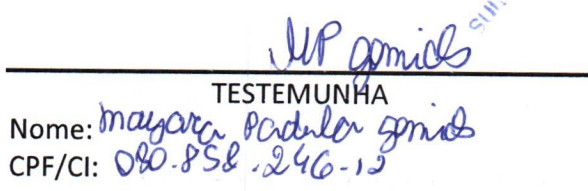 MP gomides
TESTEMUNHA
Nome: mayara Padula gomides
CPF/CI: 080.858.246-12